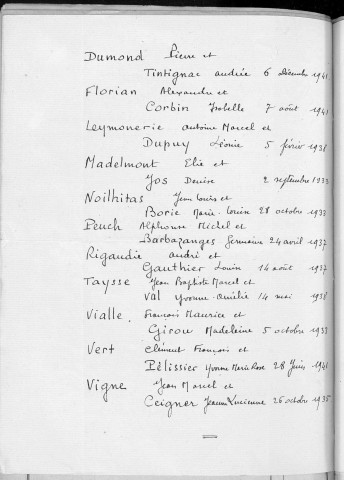 Dumond Pierre et
Tintignac andrée 6 décembre 1941
Florian Alexandre et
Corbin Isabelle 7 août 1941
Leymonerie antoine Marcel et
Dupuy Léonie 5 février 1938
Madelmont Elie et
Jos Denise 2 septembre 1933
Noilhitas Jean Louis et
Borie Marie-Louise 28 octobre 1933
Peuch Alphonse Michel et
Barbazanges Germaine 24 avril 1937
Rigaudie andré et
Gauthier 14 août 1937
Taysse Jean Baptiste Marcel et
Val Yvonne 14 mai 1938
Vialle François Maurice et
Girou Madeleine 5 octobre 1933
Vert Clément François et
Pélissier Yvonne Marie Rose 28 Juin 1941
Vigne Jean Marcel et
Ceigner Lucienne 26 octobre 1935